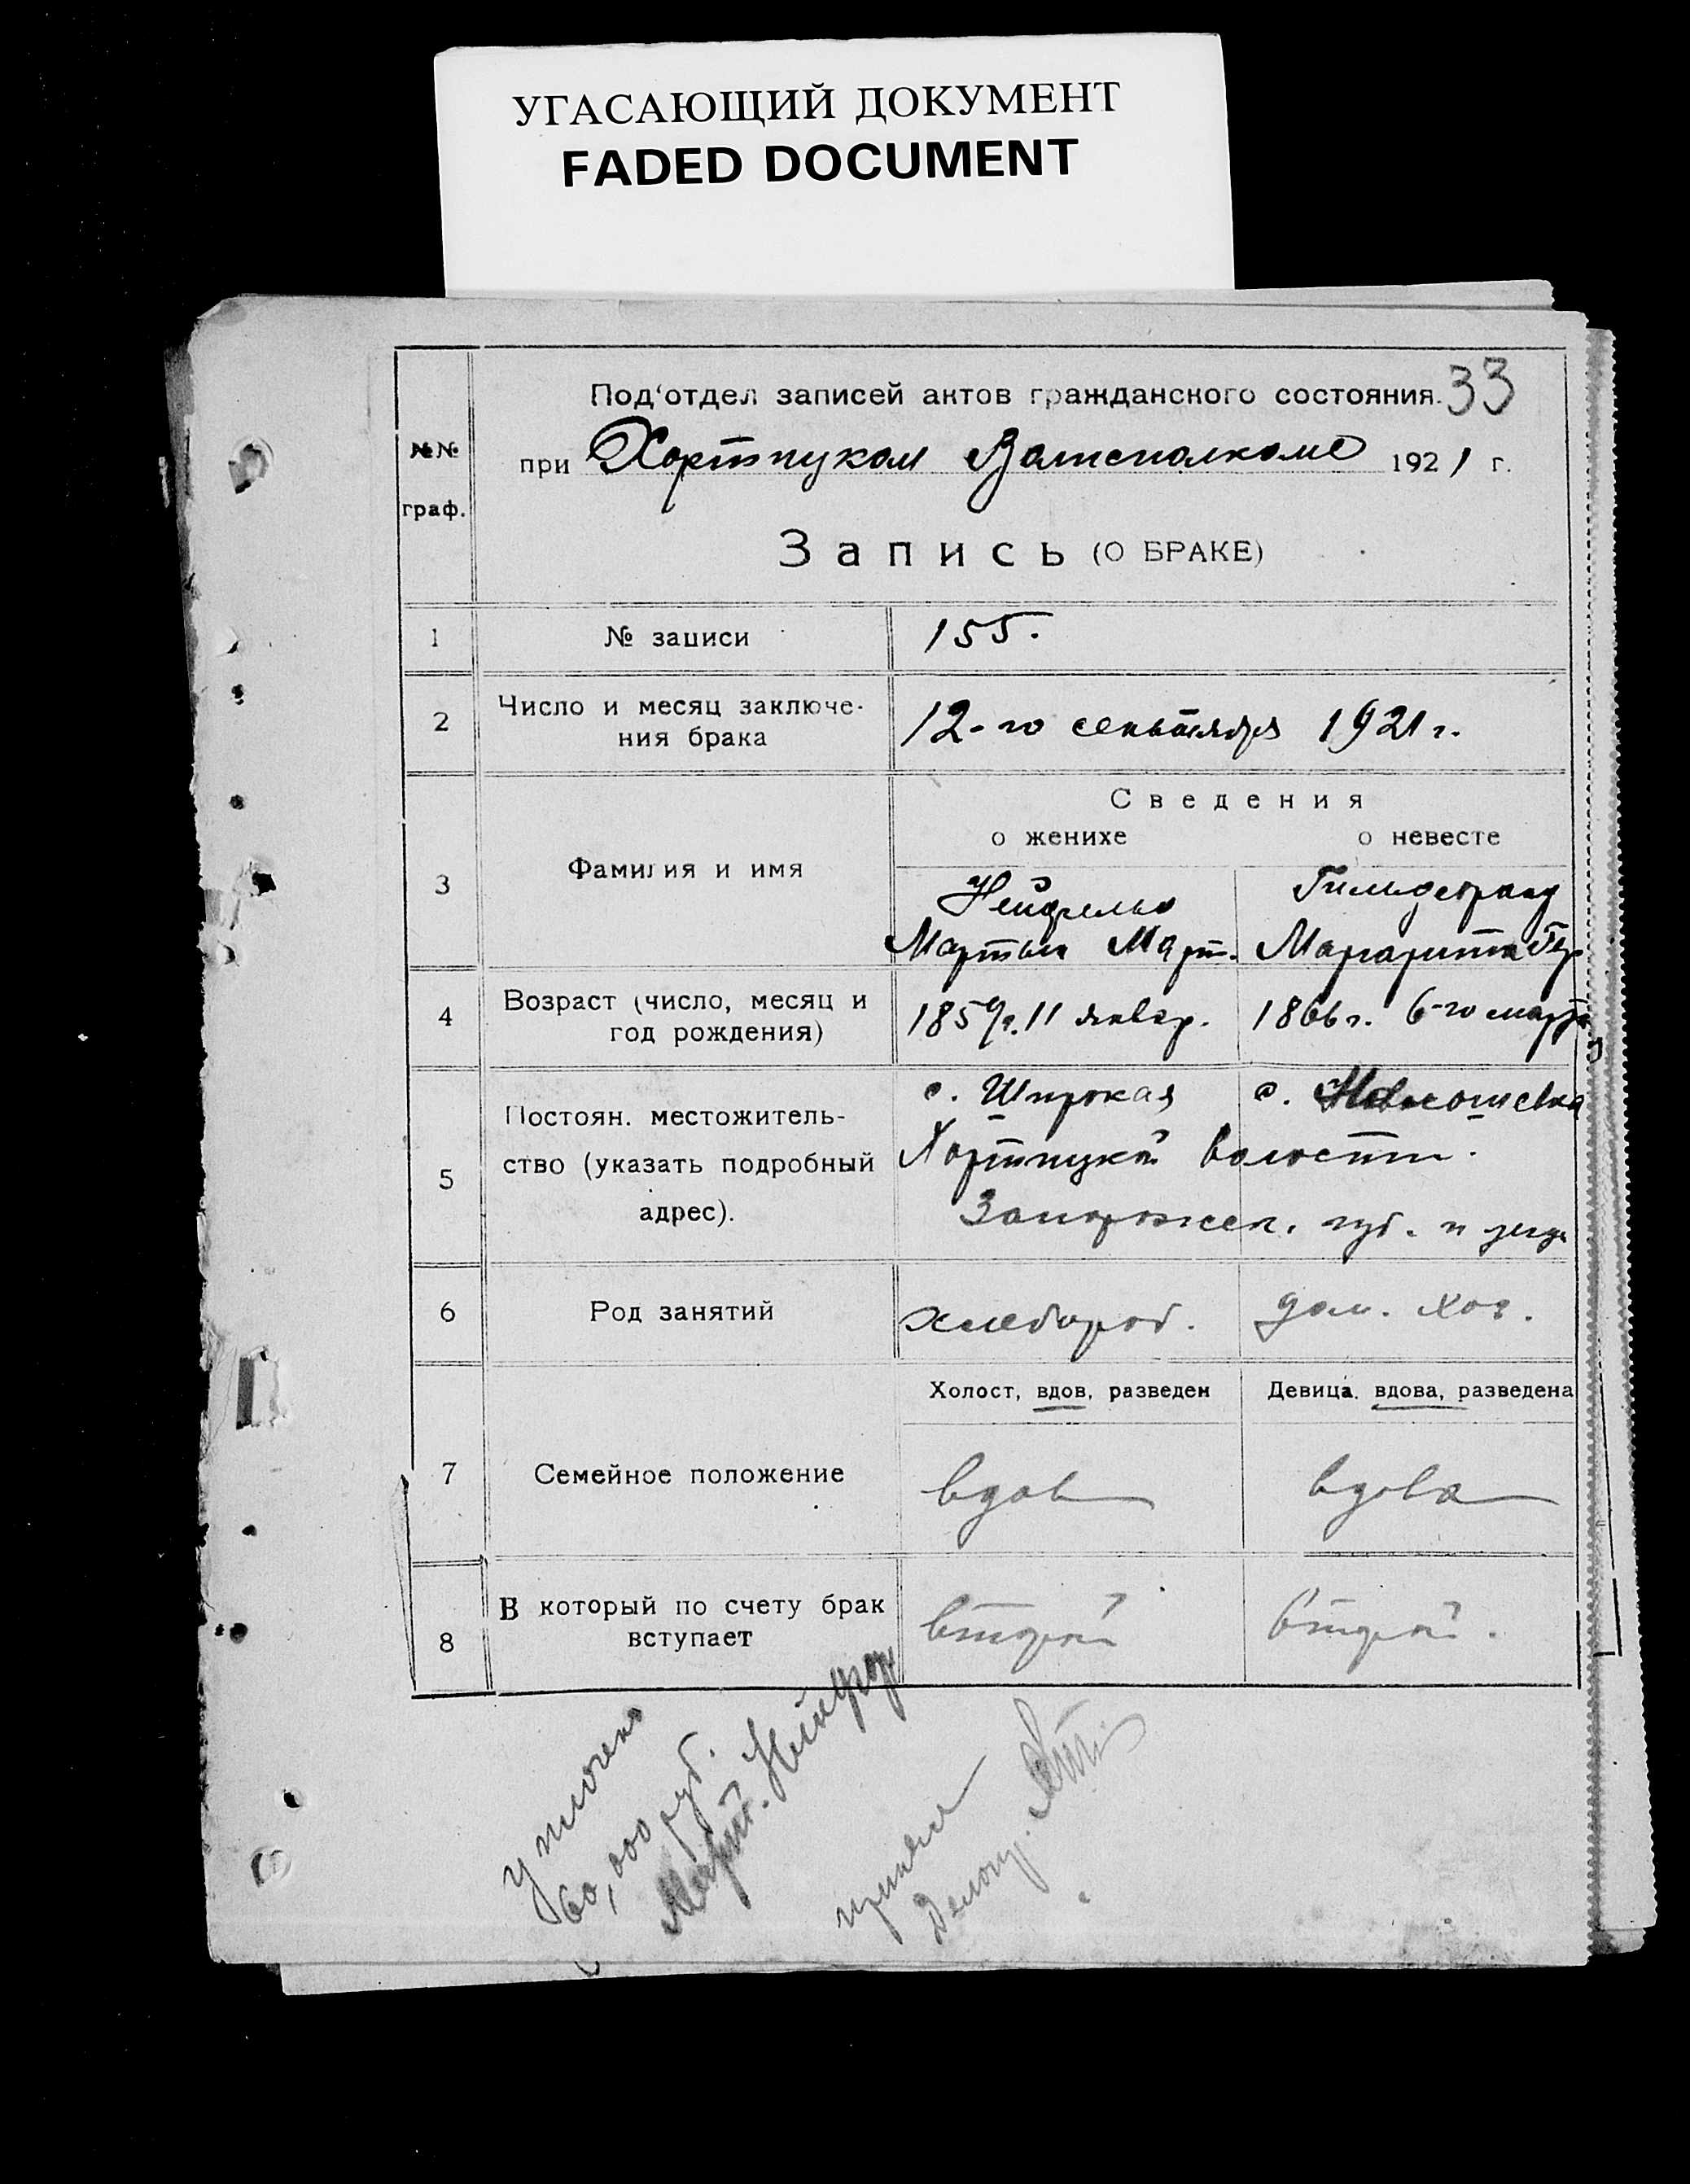 УГАСАЮЩИЙ ДОКУМЕНТ
FADED DOCUMENT
Под'отдел записей актов гражданского состояния. 33
№№ граф.
при Хортицком Волисполкоме 1921 г.
Запись (О БРАКЕ)
1 № записи 155.
2 Число и месяц заключе-
ния брака 12-го сентября 1921 г.
Сведения
о женихе о невесте
3 Фамилия и имя
Нейфельд Гильдебранд
Мартын Март. Маргарита
4 Возраст (число, месяц и
год рождения) 1859 г. 11 январ. 1866 г. 6-го марта
5 Постоян. местожитель-
ство (указать подробный
адрес).
с. Широкая с.
Хортицкой волости.
Запорожск. губ. и уезда
6 Род занятий хлебороб. дом. хоз.
Холост, вдов, разведен Девица, вдова, разведена
7 Семейное положение вдов вдова
8 В который по счету брак
вступает второй второй.
уплочено
60,000 руб.
Март. Нейфельд
принял
Делопр.